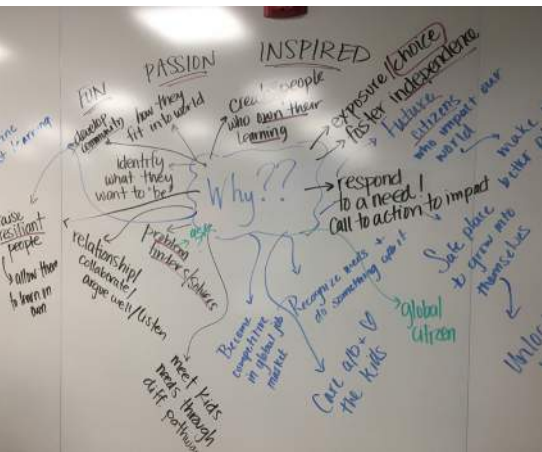 FUN
PASSION
INSPIRED
develop
community
how they
fit into world
create people
who own their
learning
exposure/choice
foster independence
future
citizens
who impact our
world
make
better
identify
what they
want to "be"
Why??
respond
to a need/
call to action to impact
Safe place
to grow into
themselves
resiliant
people
↳ allow them
to learn on
own
relationship/
collaborate/
argue well/listen
problem
finders/solvers
agile
meet kids
needs through
diff pathw
Become
competitive
in global job
market
Recognize needs +
do something abt it
Care abt + ♡
the kids
global
citizen